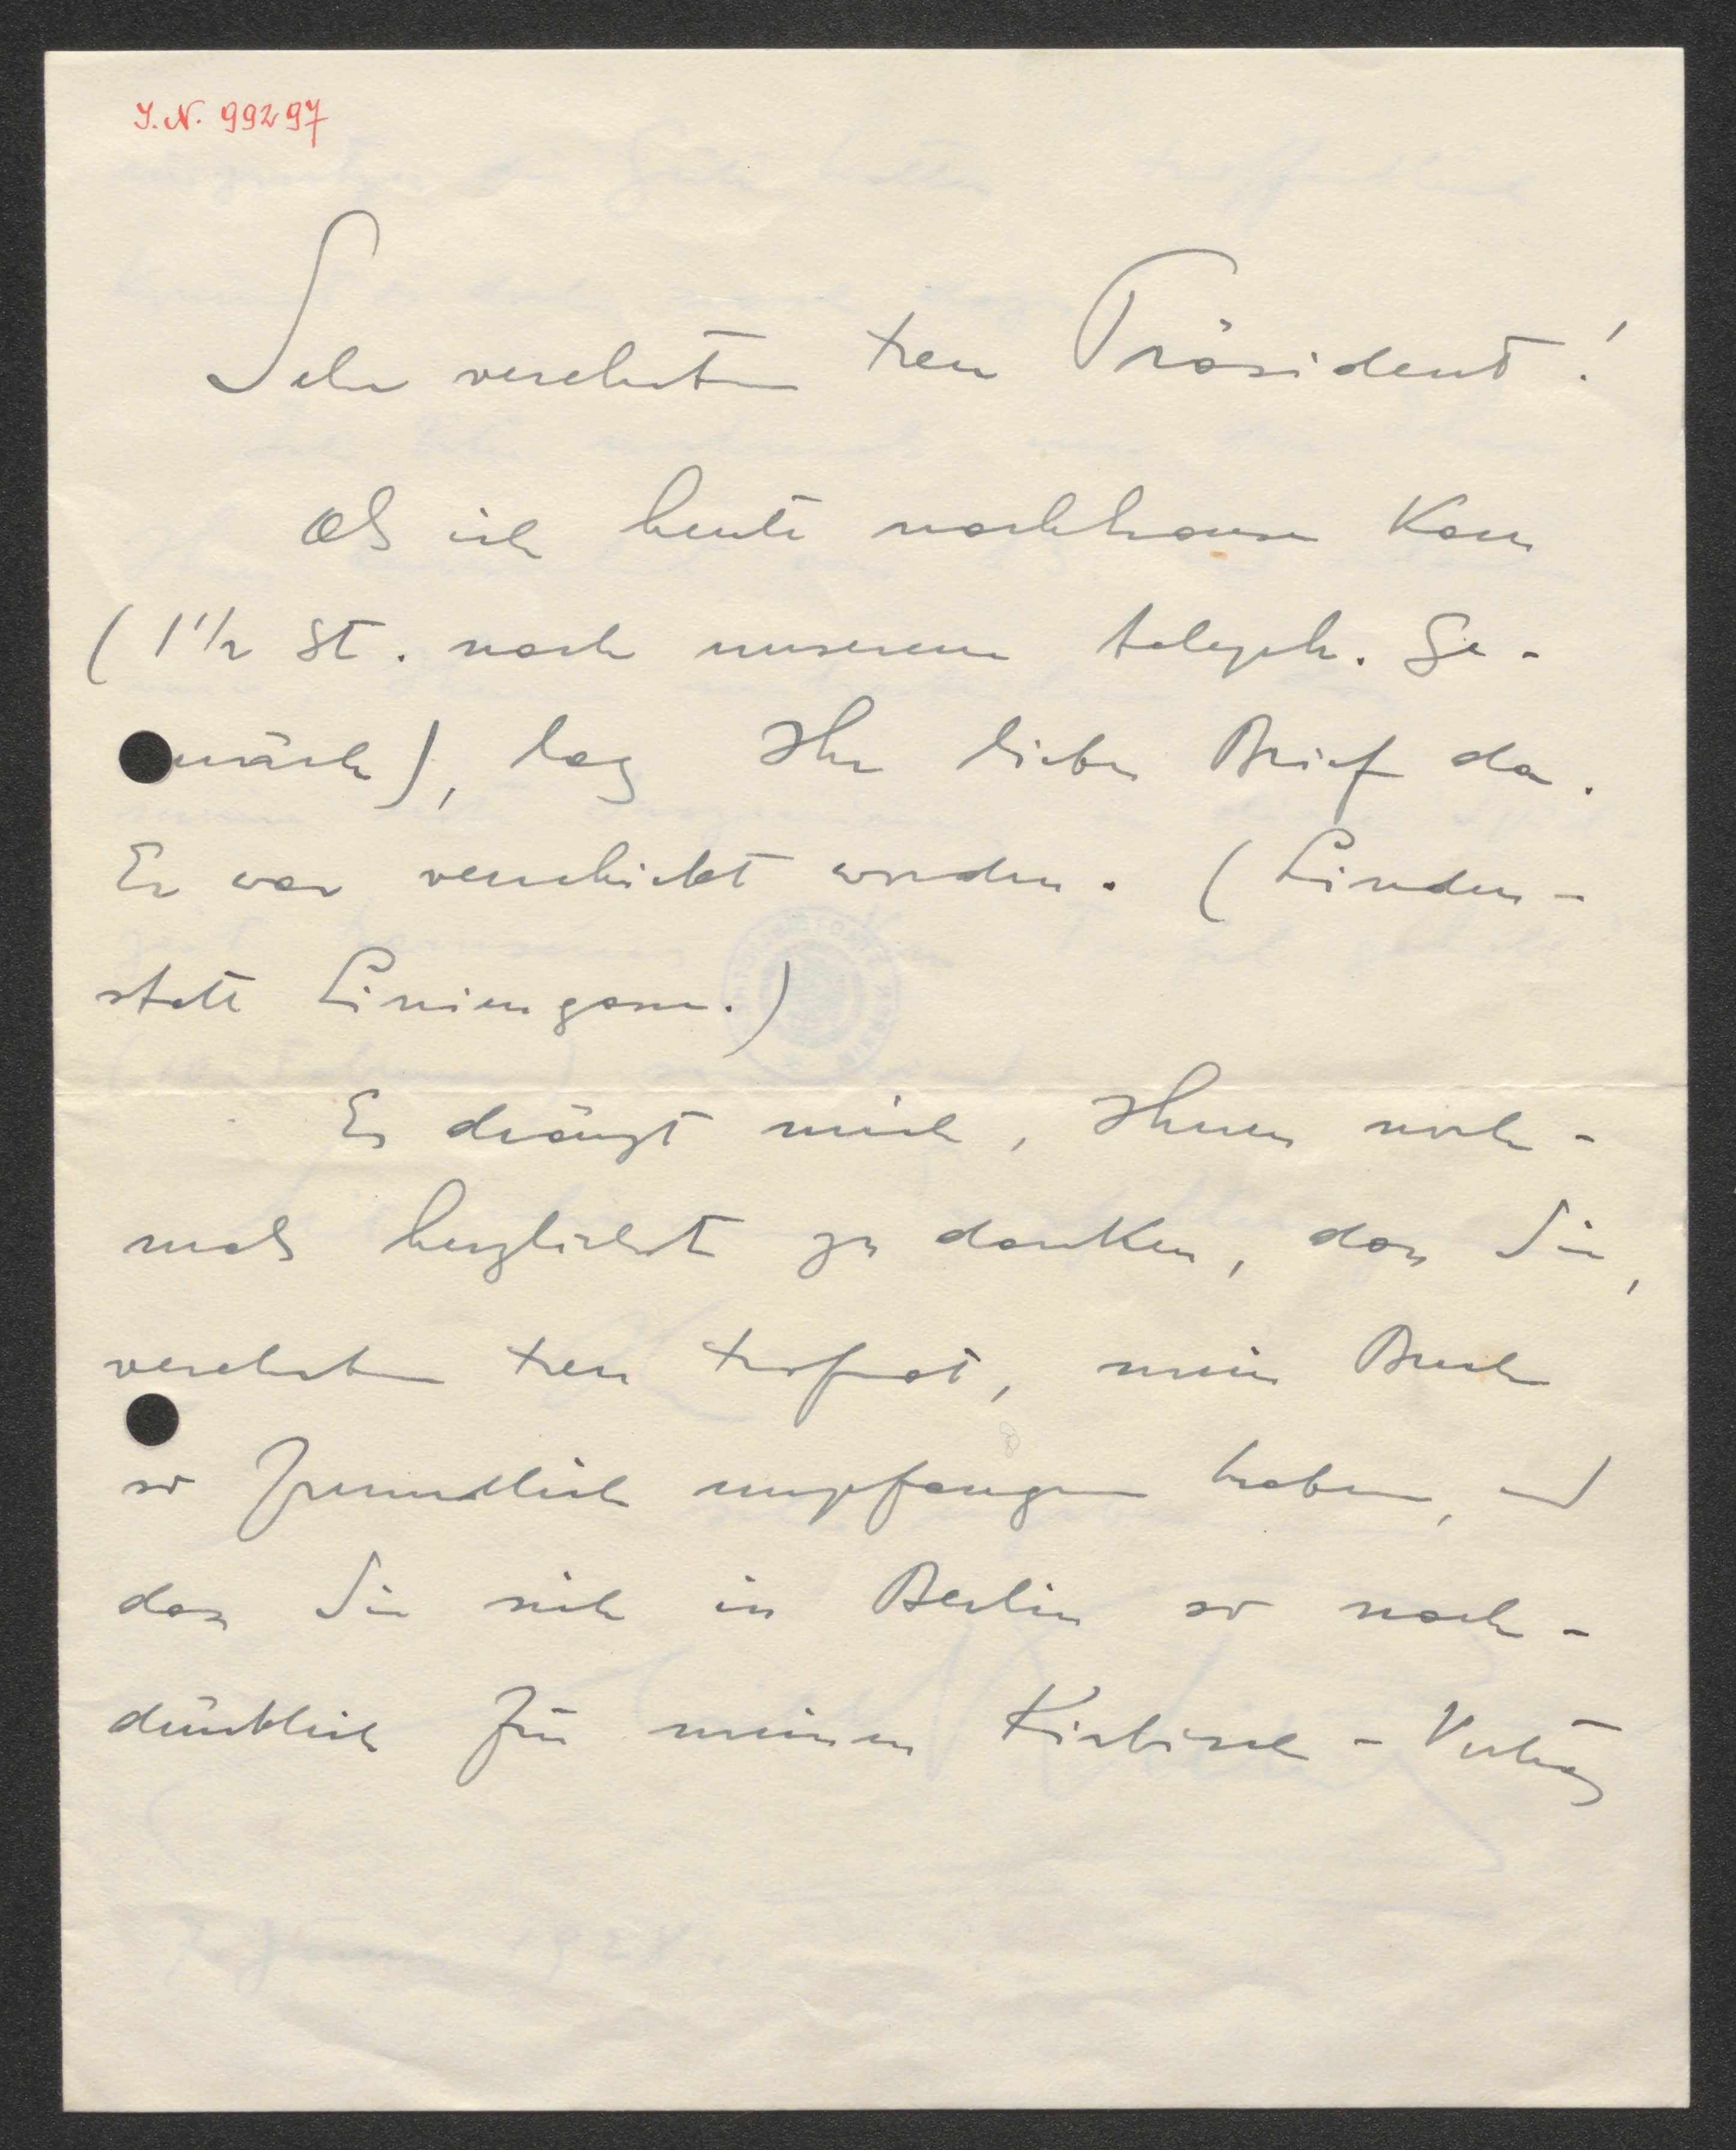 I.N. 99297
Sehr verehrter Herr Präsident!
Als ich heute nachhause kam
(1 1/2 St. nach unserem teleph. Ge-
spräch), lag Ihr lieber Brief da.
Er war verschickt worden. (Linden-
statt Liniengasse.)
Es drängt mich, Ihnen noch-
mals herzlichst zu danken, dass Sie,
verehrter Herr Hofrat, mein Buch
so freundlich empfangen haben, und
dass Sie sich in Berlin so nach-
drücklich für meinen Kürbisch-Vertrag